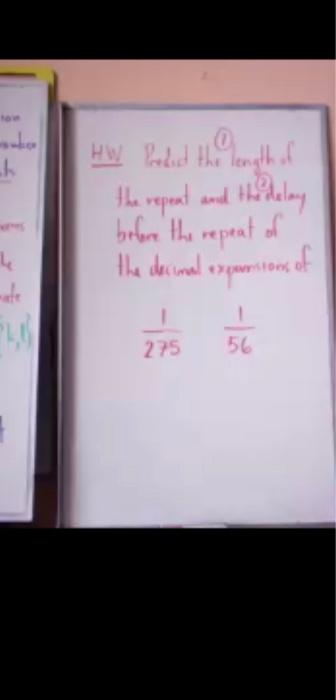 ion
HW Predict the ① length of
the repeat and the ② delay
before the repeat of
the decimal expansions of
1/275 1/56